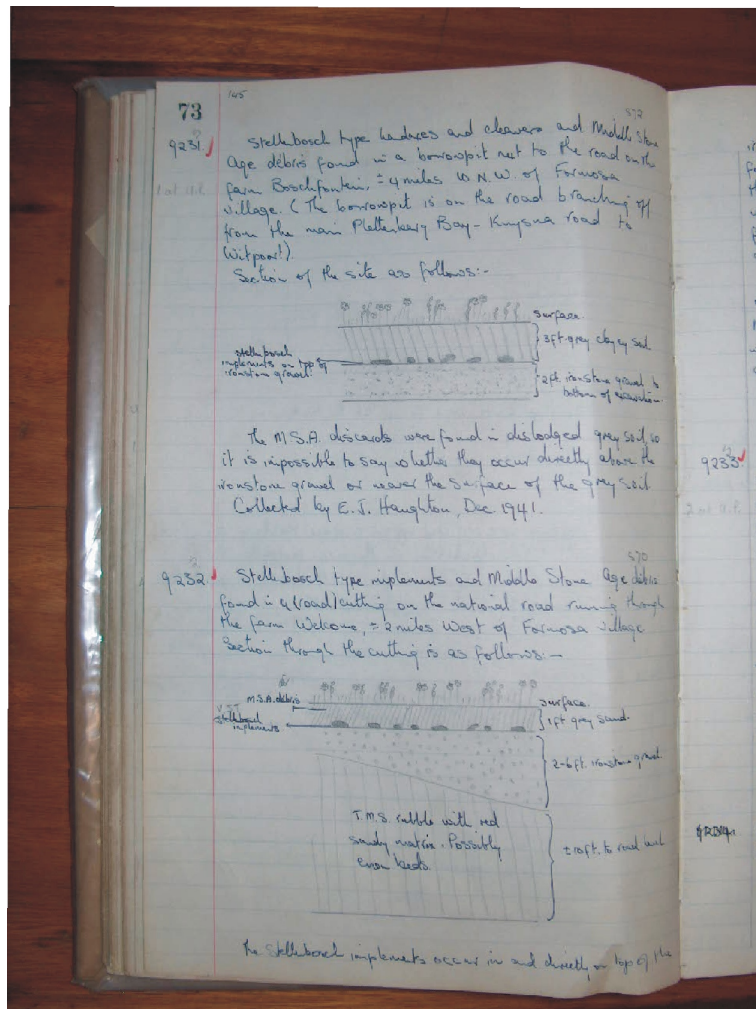 73
145
572
9231
Stellenbosch type handaxes and cleavers and Middle Stone
Age debris found in a borrowpit next to the road on the
farm Boschfontein, ± 4 miles to N.W. of Formosa
village. (The borrowpit is on the road branching off
from the main Plettenberg Bay - Knysna road to
Witpoort).
Section of the site as follows:-
surface.
3ft. grey clayey soil
Stellenbosch
implements on top of
ironstone gravel.
2ft. ironstone gravel to
bottom of excavation.
The M.S.A. discards were found in dislodged grey soil, so
it is impossible to say whether they occur directly above the
ironstone gravel or nearer the surface of the grey soil.
Collected by E.J. Haughton, Dec. 1941.
570
9232
Stellenbosch type implements and Middle Stone Age debris
found in a road cutting on the national road running through
the farm Welcome, ± 2 miles West of Formosa village
Section through the cutting is as follows:-
M.S.A. debris
surface.
1ft grey sand.
Stellenbosch
implements
2-6ft. ironstone gravel
T.M.S. rubble with red
sandy matrix. Possibly
Enon beds.
± 10ft. to road level
The Stellenbosch implements occur in and directly on top of the
9233